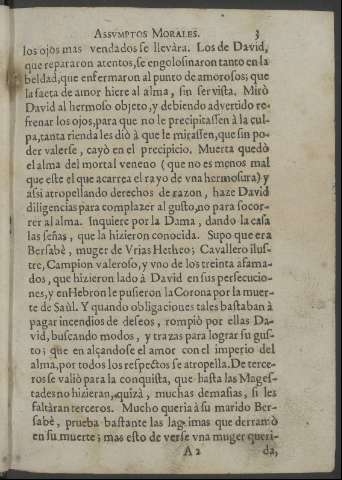 ASSVMPTOS MORALES. 3
los ojos mas vendados se llevàra. Los de David,
que repararon atentos, se engolosinaron tanto en la
beldad, que enfermaron al punto de amorosos; que
la saeta de amor hiere al alma, sin ser vista. Mirò
David al hermoso objeto, y debiendo advertido re-
frenar los ojos, para que no le precipitassen à la cul-
pa, tanta rienda les diò à que le mirassen, que sin po-
der valerse, cayò en el precipicio. Muerta quedò
el alma del mortal veneno (que no es menos mal
que este el que acarrea el rayo de vna hermosura) y
assi atropellando derechos de razon, haze David
diligencias para complazer al gusto, no para socor-
rer al alma. Inquiere por la Dama, dando la casa
las señas, que la hizieron conocida. Supo que era
Bersabè, muger de Vrias Hetheo; Cavallero ilus-
tre, Campion valeroso, y vno de los treinta afama-
dos, que hizieron lado à David en sus persecucio-
nes, y en Hebron le pusieron la Corona por la muer-
te de Saùl. Y quando obligaciones tales bastaban à
pagar incendios de deseos, rompiò por ellas Da-
vid, buscando modos, y trazas para lograr su gus-
to; que en alçandose el amor con el imperio del
alma, por todos los respectos se atropella. De terce-
ros se valiò para la conquista, que hasta las Mages-
tades no hizieran, quizà, muchas demasias, si les
faltàran terceros. Mucho queria à su marido Ber-
sabè, prueba bastante las lagrimas que derramò
en su muerte; mas esto de verse vna muger queri-
A 2 da,